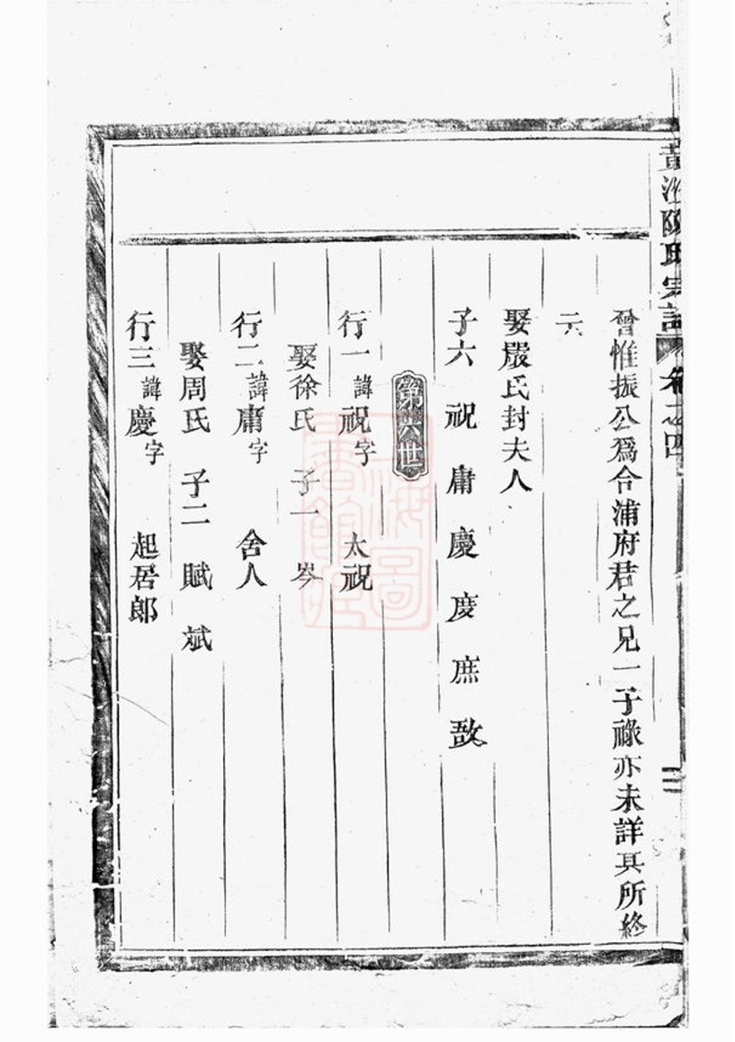 黃 陳氏宗譜 卷之四
二
曾惟振公爲合浦府君之兄一子祿亦未詳其所終
云
娶嚴氏封夫人
子六 祝 庸 慶 度 庶 敔
第六世
行一諱祝字 太祝
娶徐氏 子一 岑
行二諱庸字 舍人
娶周氏 子二 賦 斌
行三諱慶字 起居郎
上海圖書館藏